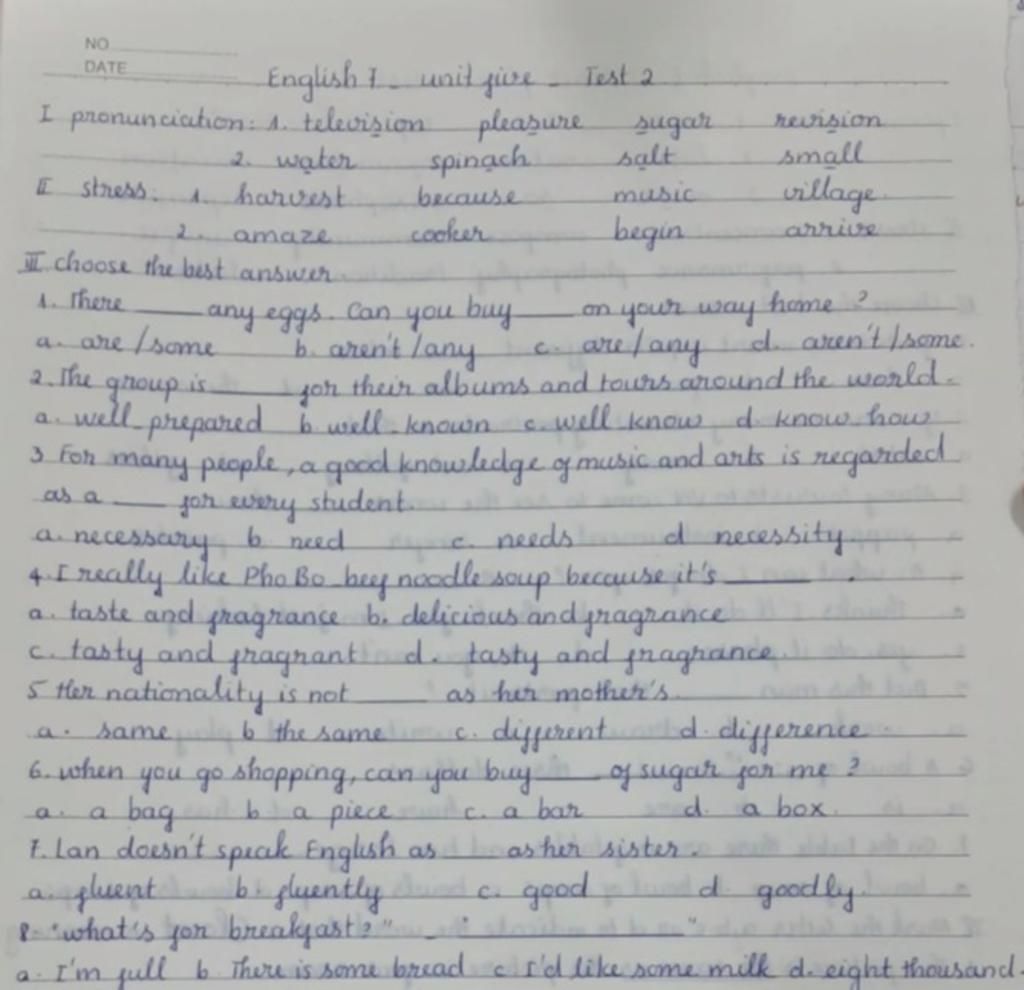 NO
DATE
English 7 - unit five - Test 2
I pronunciation: 1. television pleasure sugar revision
2. water spinach salt small
II stress: 1. harvest because music village
2. amaze cooker begin arrive
III choose the best answer
1. There ____ any eggs. Can you buy ____ on your way home ?
a. are/some b. aren't/any c. are/any d. aren't/some.
2. The group is ____ for their albums and tours around the world.
a. well-prepared b. well-known c. well know d. know how
3 For many people, a good knowledge of music and arts is regarded
as a ____ for every student.
a. necessary b. need c. needs d necessity
4. I really like Pho Bo - beef noodle soup because it's ____ .
a. taste and fragrance b. delicious and fragrance
c. tasty and fragrant d. tasty and fragrance.
5 Her nationality is not ____ as her mother's.
a. same b the same c. different d. difference
6. when you go shopping, can you buy ____ of sugar for me ?
a. a bag b a piece c. a bar d. a box.
7. Lan doesn't speak English as ____ as her sister.
a. fluent b. fluently c. good d goodly.
8. "what's for breakfast?" - "____"
a. I'm full b. There is some bread c I'd like some milk d. eight thousand.